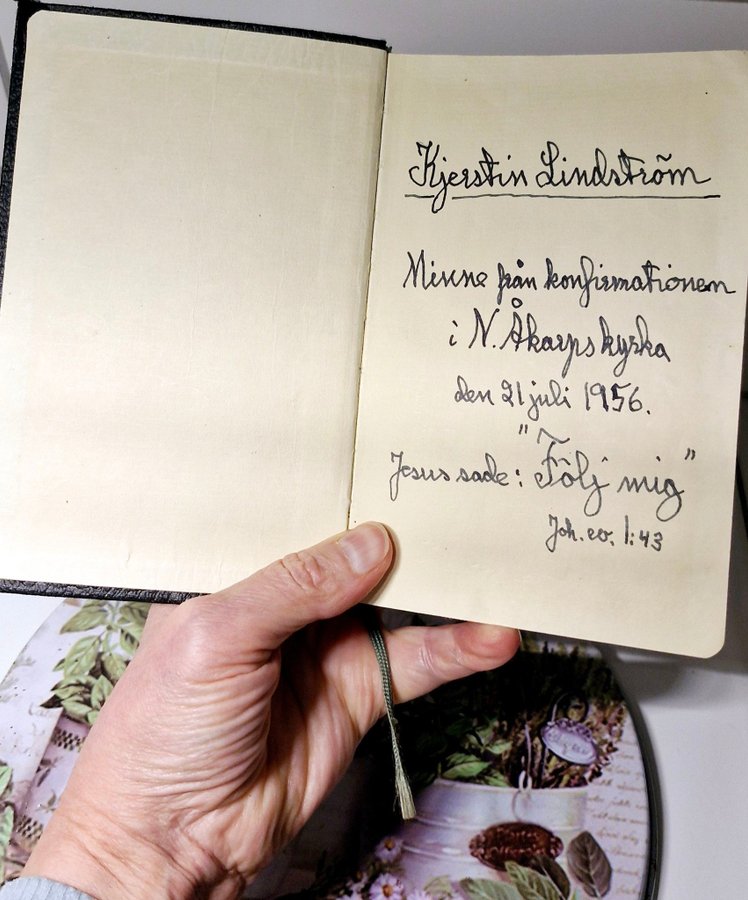 Kjerstin Lindström
Minne från konfirmationen
i N. Åkarps kyrka
den 21 juli 1956.
Jesus sade: "Följ mig"
Joh. ev. 1:43